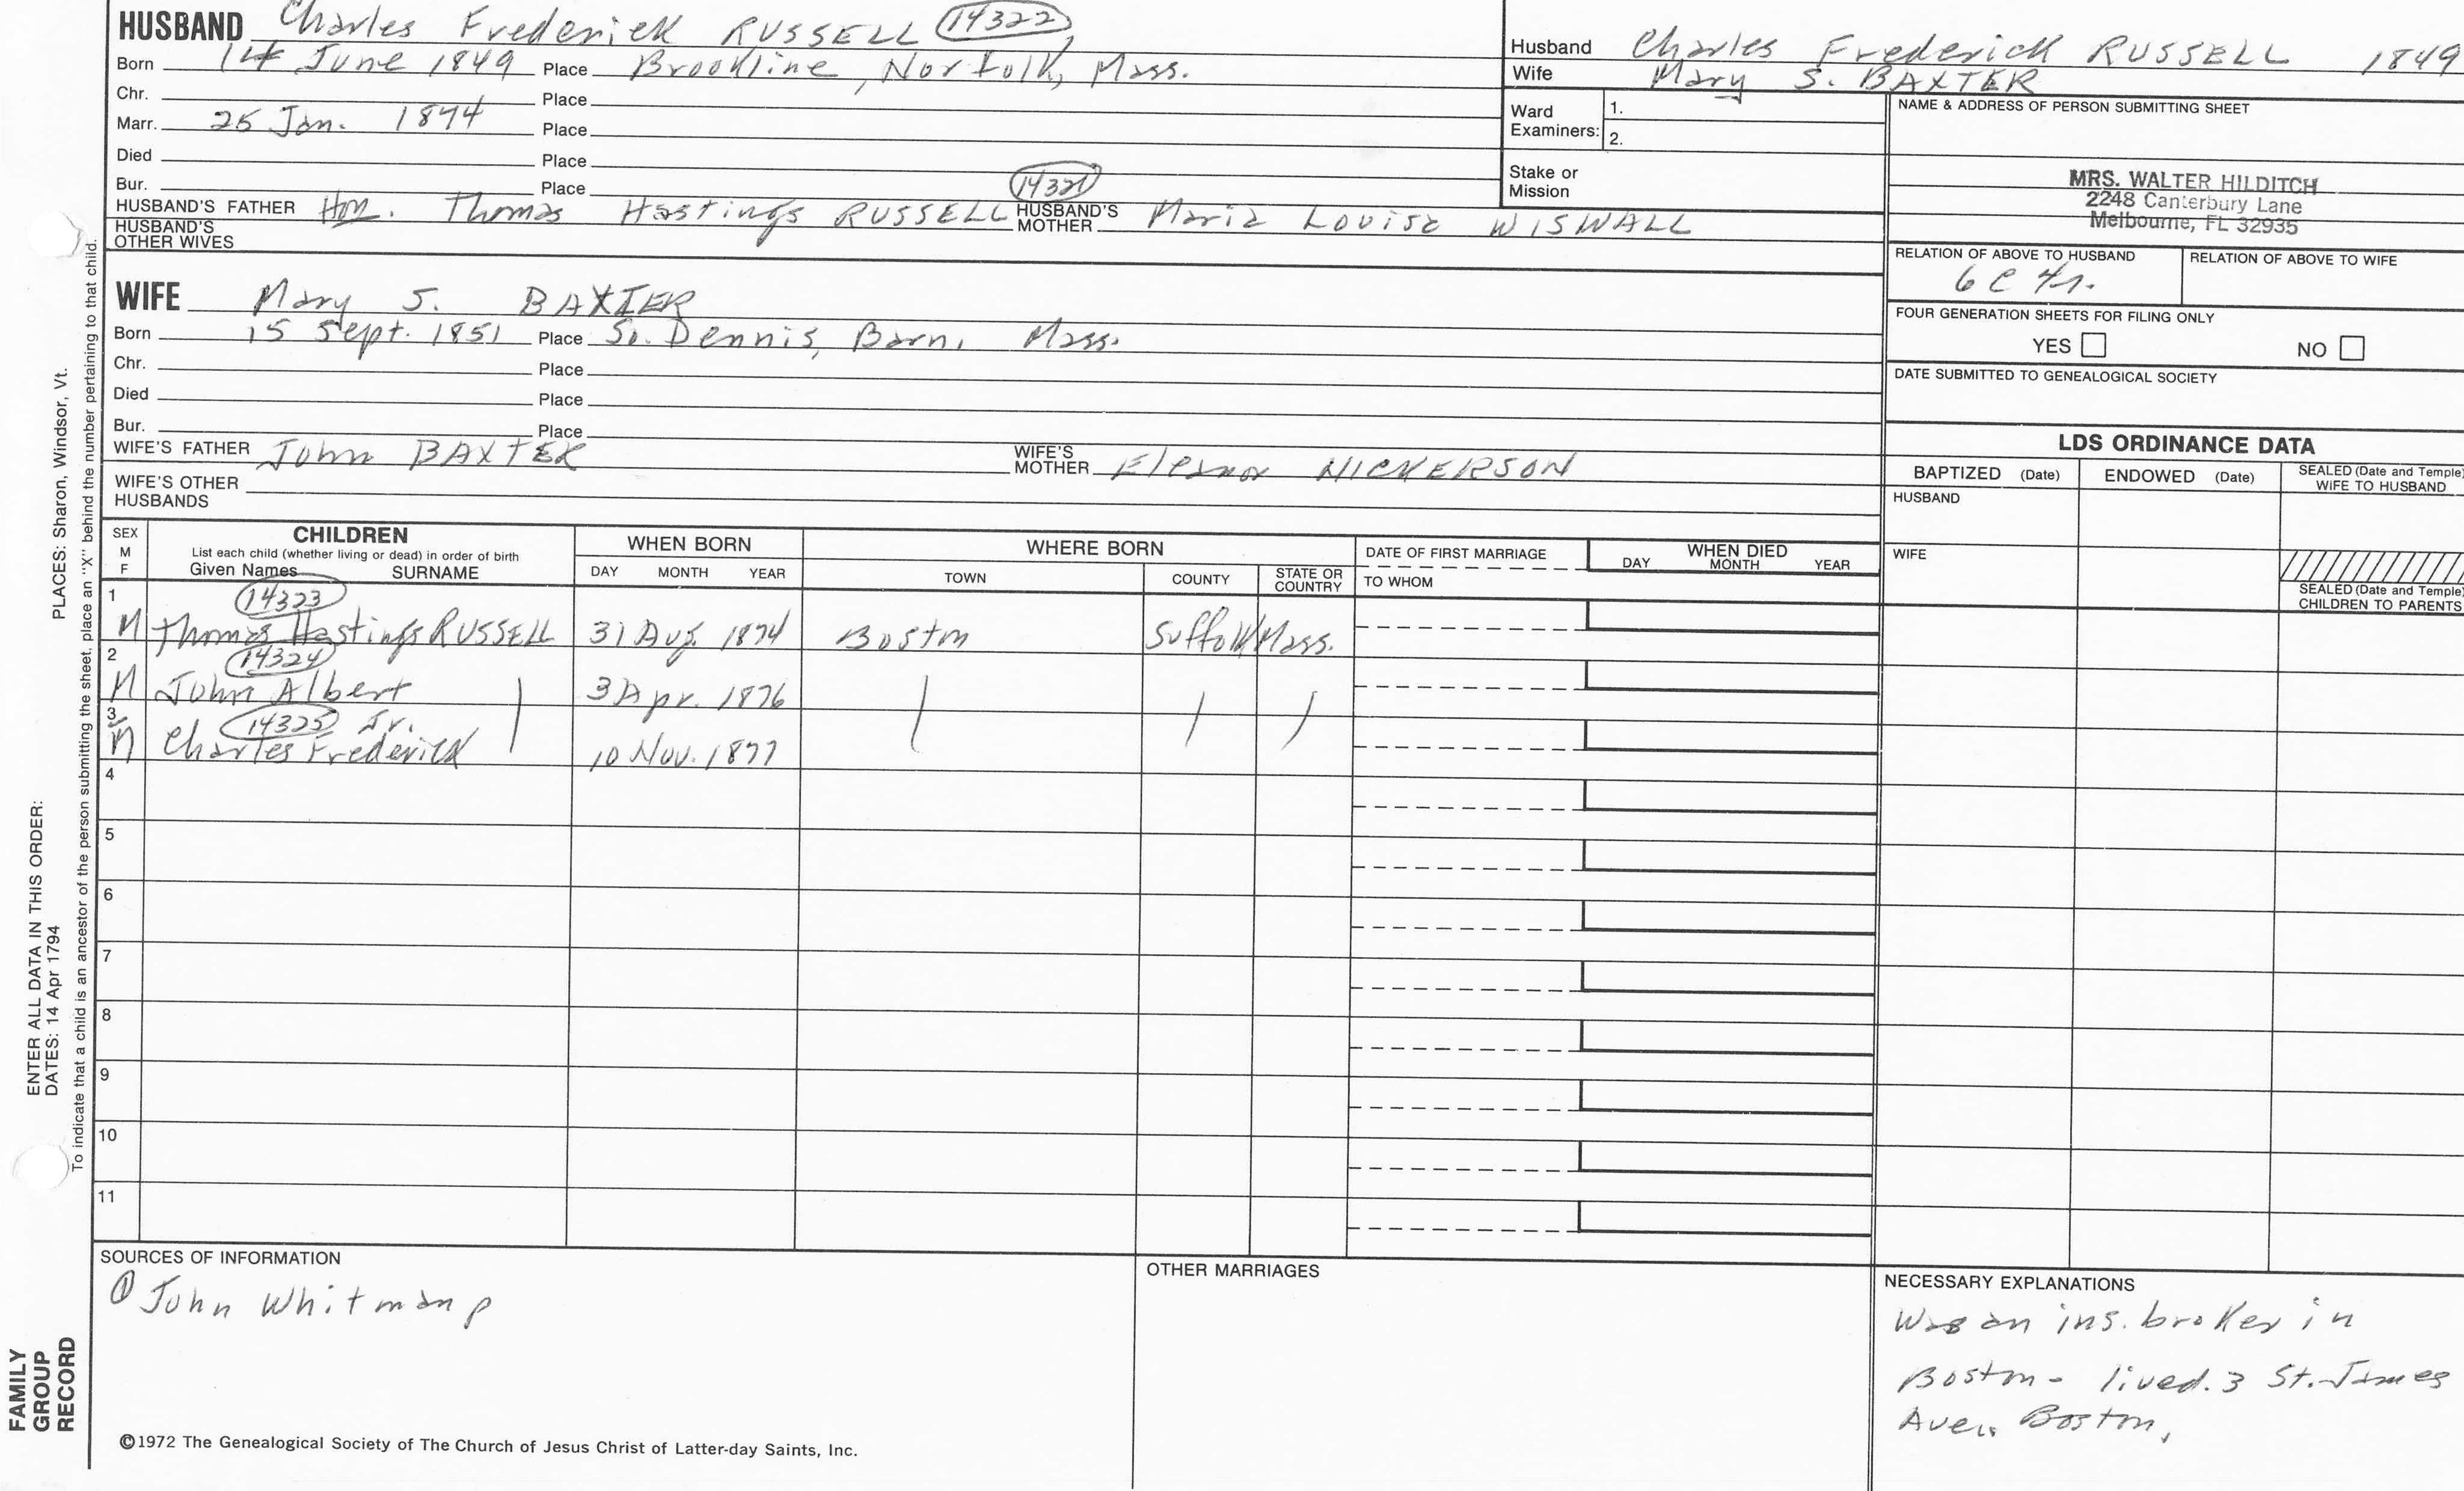 HUSBAND Charles Frederick RUSSELL 14322
Born 14 June 1849 Place Brookline, Norfolk, Mass.
Chr. Place
Marr. 25 Jan. 1874 Place
Died Place
Bur. Place
HUSBAND'S FATHER Hon. Thomas Hastings RUSSELL 14321 HUSBAND'S MOTHER Maria Louisa WISWALL
HUSBAND'S OTHER WIVES
WIFE Mary S. BAXTER
Born 15 Sept. 1851 Place So. Dennis, Barn. Mass.
Chr. Place
Died Place
Bur. Place
WIFE'S FATHER John BAXTER WIFE'S MOTHER Eleanor NICKERSON
WIFE'S OTHER HUSBANDS
Husband Charles Frederick RUSSELL 1849
Wife Mary S. BAXTER
Ward Examiners: 1.
2.
Stake or Mission
NAME & ADDRESS OF PERSON SUBMITTING SHEET
MRS. WALTER HILDITCH
2248 Canterbury Lane
Melbourne, FL 32935
RELATION OF ABOVE TO HUSBAND RELATION OF ABOVE TO WIFE
6 C 4r.
FOUR GENERATION SHEETS FOR FILING ONLY
YES NO
DATE SUBMITTED TO GENEALOGICAL SOCIETY
LDS ORDINANCE DATA
BAPTIZED (Date) ENDOWED (Date) SEALED (Date and Temple) WIFE TO HUSBAND
HUSBAND
WIFE
SEALED (Date and Temple) CHILDREN TO PARENTS
SEX M F
CHILDREN
List each child (whether living or dead) in order of birth
Given Names SURNAME
WHEN BORN
DAY MONTH YEAR
WHERE BORN
TOWN COUNTY STATE OR COUNTRY
DATE OF FIRST MARRIAGE
TO WHOM
WHEN DIED
DAY MONTH YEAR
1 14323
M Thomas Hastings RUSSELL 31 Aug. 1874 Boston Suffolk Mass.
2 14324
M John Albert ) 3 Apr. 1876 | | )
3 14325 Jr.
M Charles Frederick 10 Nov. 1877
4
5
6
7
8
9
10
11
SOURCES OF INFORMATION
① John Whitman p
OTHER MARRIAGES
NECESSARY EXPLANATIONS
Was an ins. broker in
Boston - lived. 3 St. James
Ave., Boston,
©1972 The Genealogical Society of The Church of Jesus Christ of Latter-day Saints, Inc.
FAMILY GROUP RECORD
ENTER ALL DATA IN THIS ORDER:
DATES: 14 Apr 1794
PLACES: Sharon, Windsor, Vt.
To indicate that a child is an ancestor of the person submitting the sheet, place an "X" behind the number pertaining to that child.